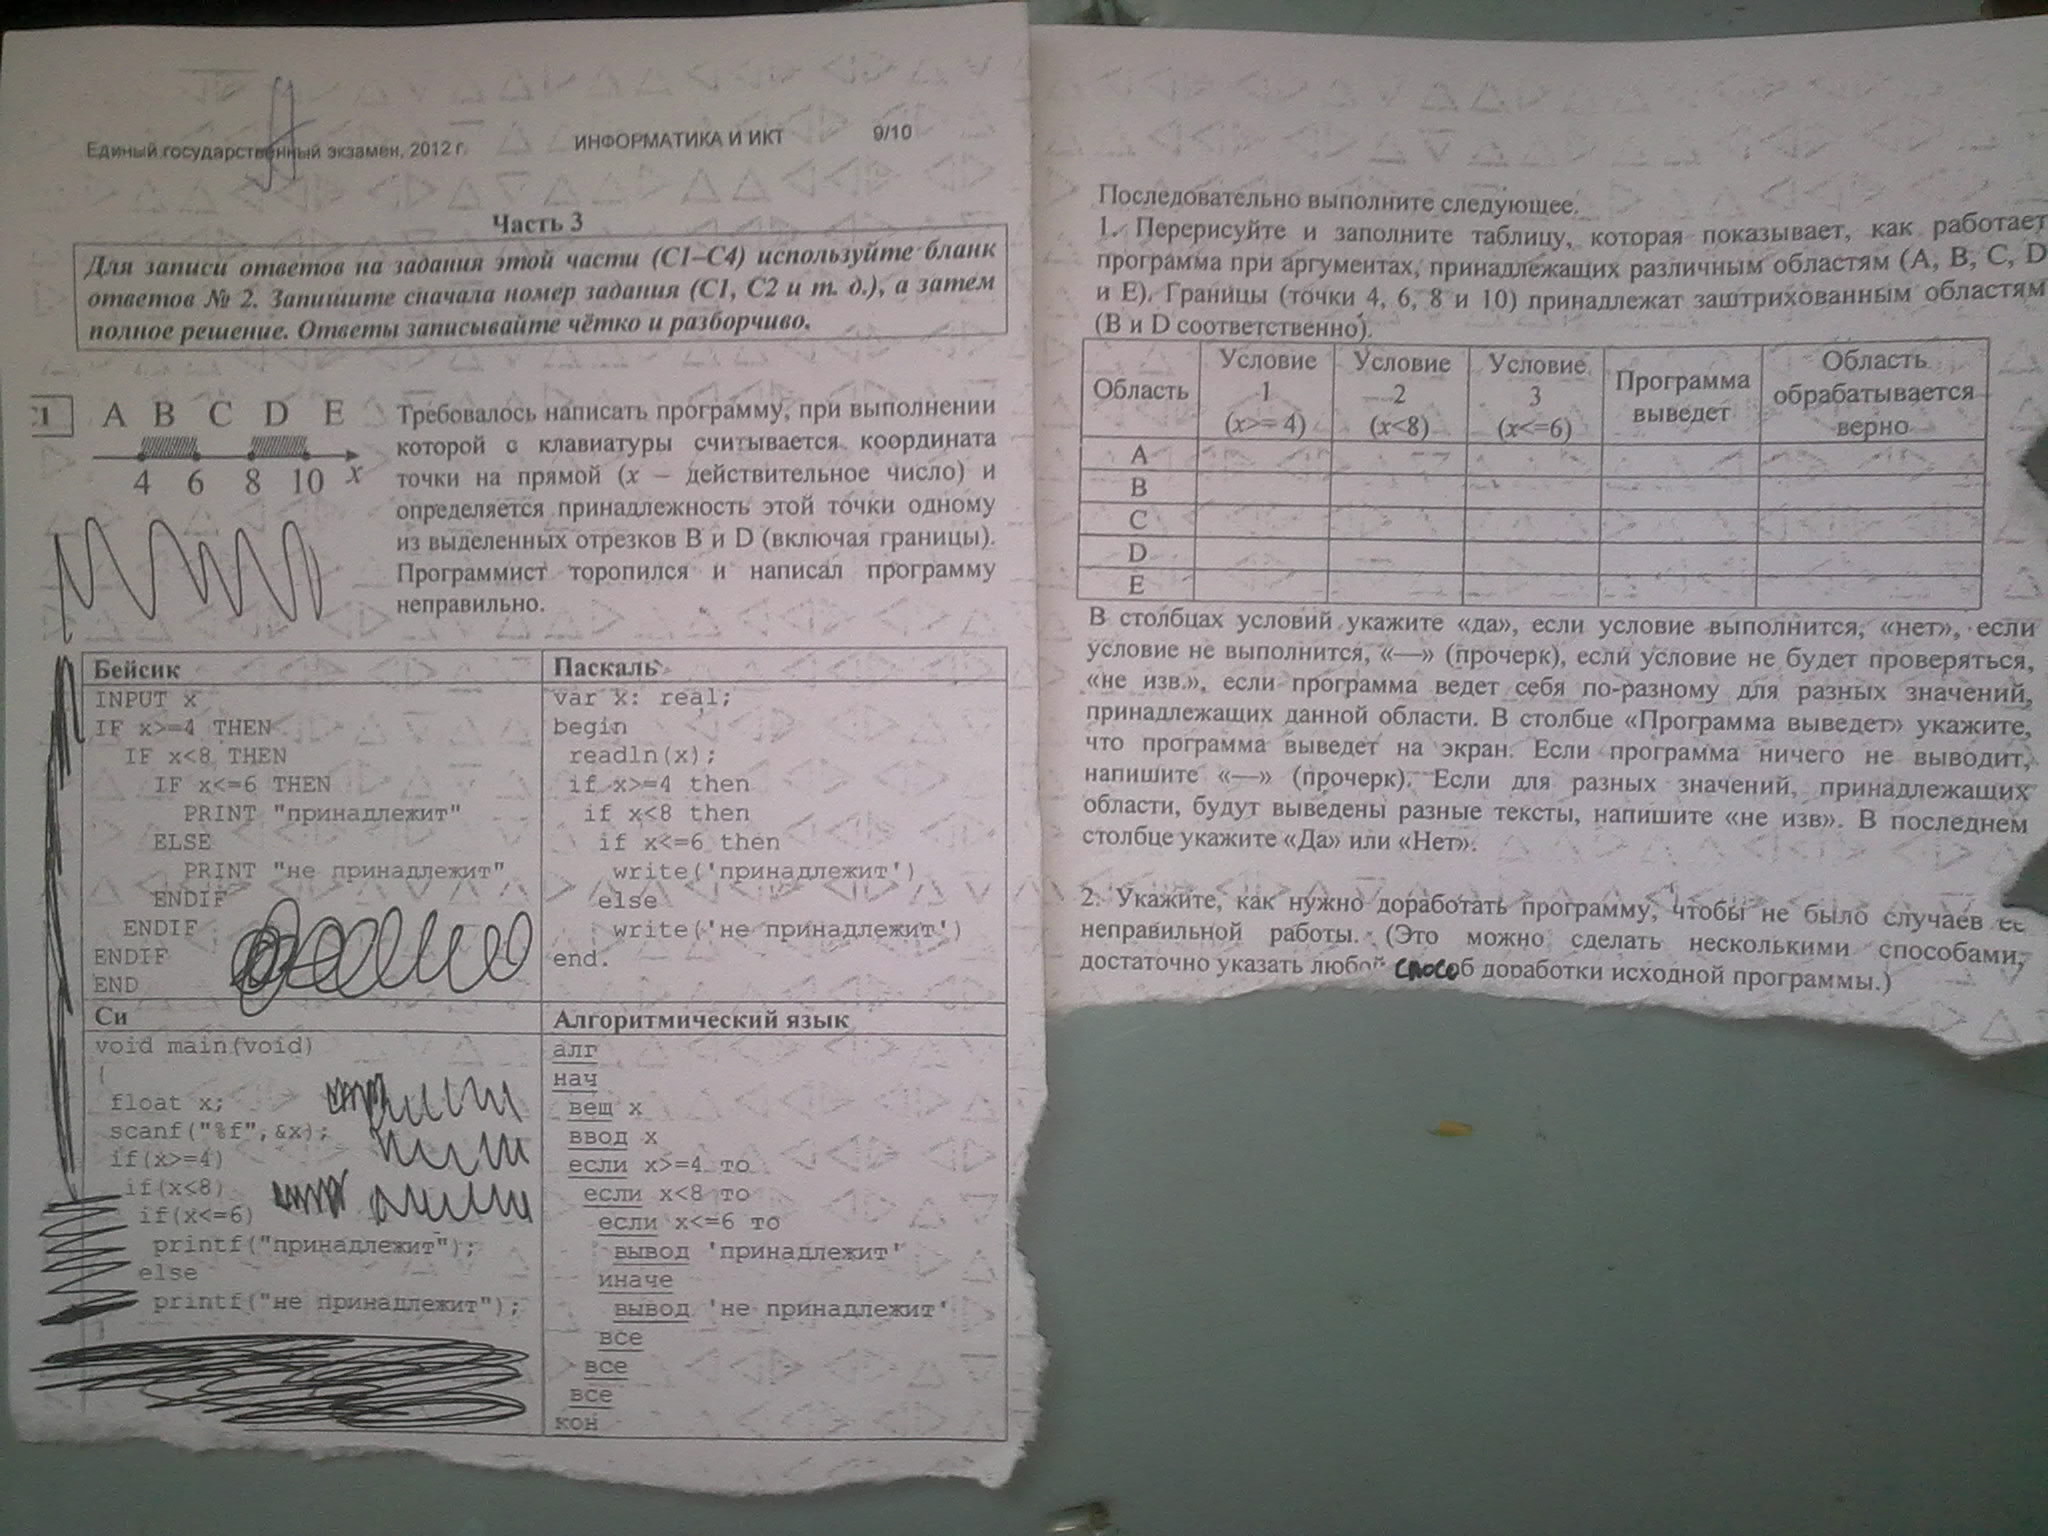 Единый государственный экзамен, 2012 г.
ИНФОРМАТИКА И ИКТ
9/10
Часть 3
Для записи ответов на задания этой части (С1–С4) используйте бланк
ответов № 2. Запишите сначала номер задания (С1, С2 и т. д.), а затем
полное решение. Ответы записывайте чётко и разборчиво.
A B C D E
4 6 8 10 x
Требовалось написать программу, при выполнении
которой с клавиатуры считывается координата
точки на прямой (x – действительное число) и
определяется принадлежность этой точки одному
из выделенных отрезков B и D (включая границы).
Программист торопился и написал программу
неправильно.
Бейсик
INPUT x
IF x>=4 THEN
IF x<8 THEN
IF x<=6 THEN
PRINT "принадлежит"
ELSE
PRINT "не принадлежит"
ENDIF
ENDIF
ENDIF
END
Паскаль
var x: real;
begin
readln(x);
if x>=4 then
if x<8 then
if x<=6 then
write('принадлежит')
else
write('не принадлежит')
end.
Си
void main(void)
{
float x;
scanf("%f",&x);
if(x>=4)
if(x<8)
if(x<=6)
printf("принадлежит");
else
printf("не принадлежит");
Алгоритмический язык
алг
нач
вещ x
ввод x
если x>=4 то
если x<8 то
если x<=6 то
вывод 'принадлежит'
иначе
вывод 'не принадлежит'
все
все
все
кон
Последовательно выполните следующее.
1. Перерисуйте и заполните таблицу, которая показывает, как работает
программа при аргументах, принадлежащих различным областям (A, B, C, D
и E). Границы (точки 4, 6, 8 и 10) принадлежат заштрихованным областям
(B и D соответственно).
Область
Условие 1 (x>= 4)
Условие 2 (x<8)
Условие 3 (x<=6)
Программа выведет
Область обрабатывается верно
A
B
C
D
E
В столбцах условий укажите «да», если условие выполнится, «нет», если
условие не выполнится, «—» (прочерк), если условие не будет проверяться,
«не изв.», если программа ведет себя по-разному для разных значений,
принадлежащих данной области. В столбце «Программа выведет» укажите,
что программа выведет на экран. Если программа ничего не выводит,
напишите «—» (прочерк). Если для разных значений, принадлежащих
области, будут выведены разные тексты, напишите «не изв». В последнем
столбце укажите «Да» или «Нет».
2. Укажите, как нужно доработать программу, чтобы не было случаев ее
неправильной работы. (Это можно сделать несколькими способами,
достаточно указать любой способ доработки исходной программы.)